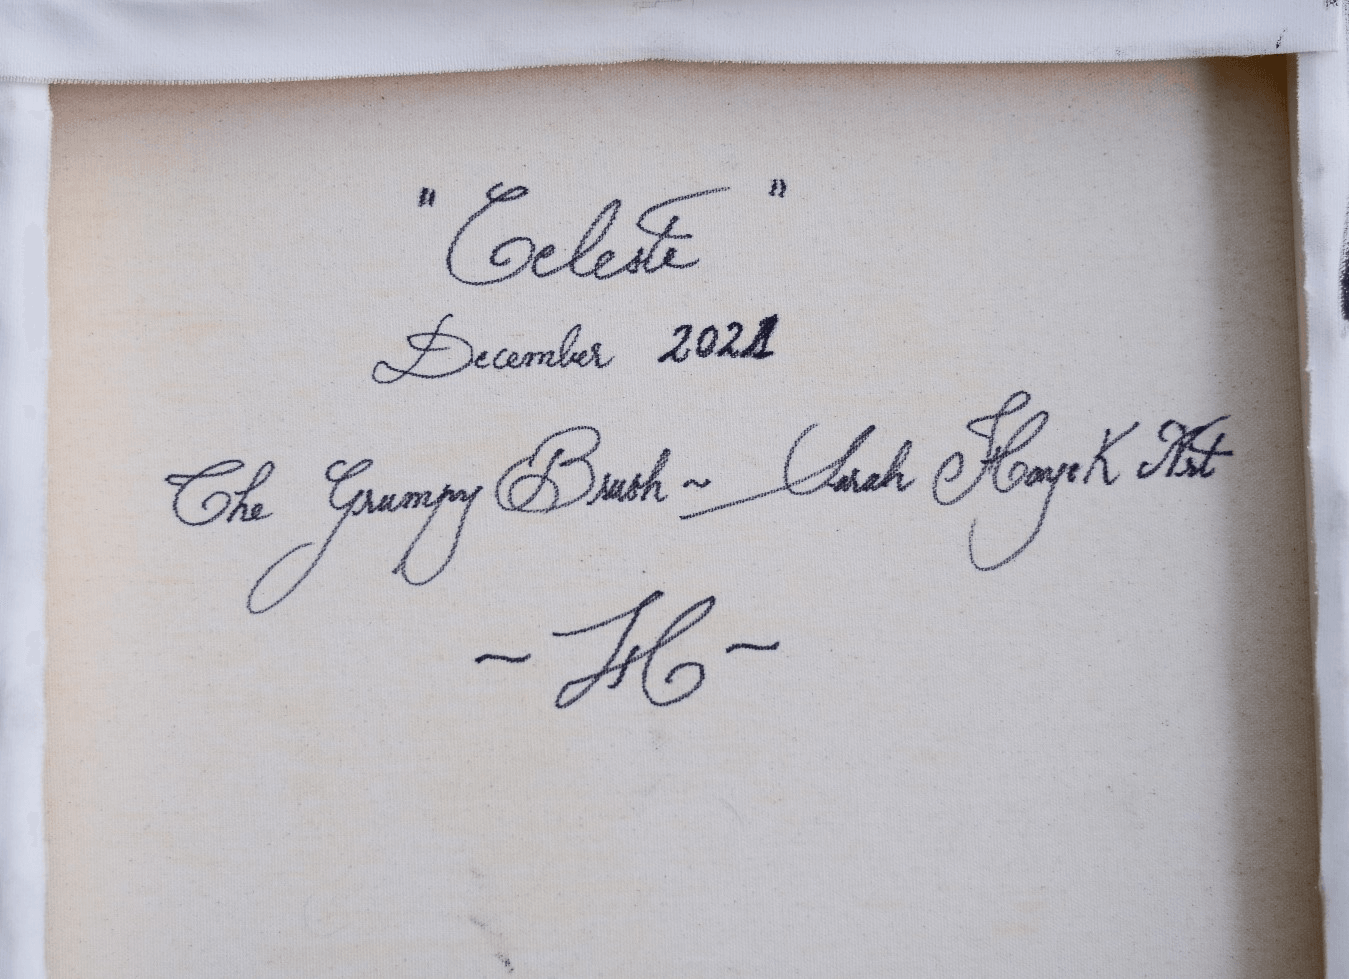 "Celeste"
December 2021
The Grumpy Brush ~ Sarah Hayek Art
~ SH ~